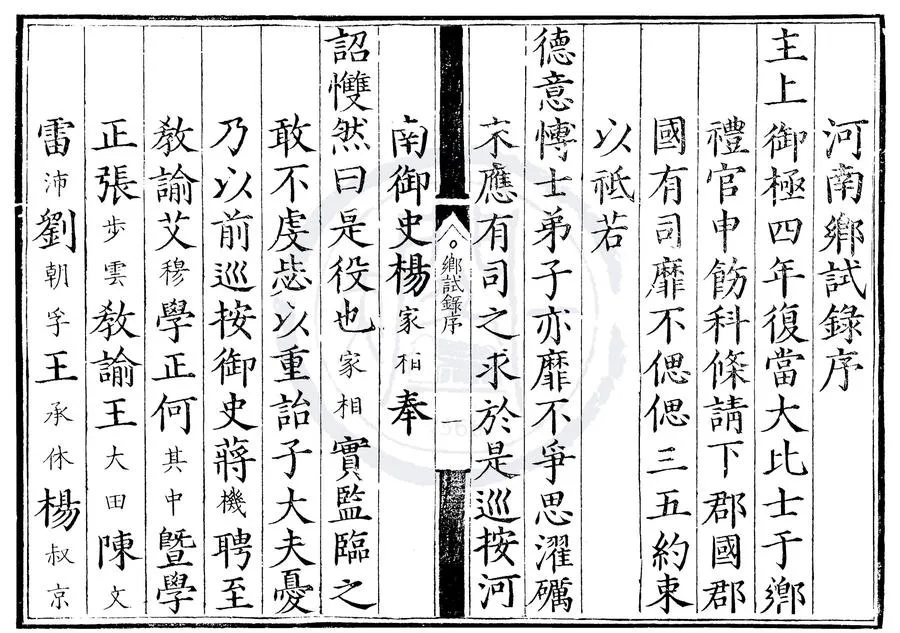 河南鄉試錄序
主上御極四年復當大比士于鄉
禮官申飭科條請下郡國郡
國有司靡不偲偲三五約束
以祗若
德意慱士弟子亦靡不爭思濯礪
來應有司之求於是巡按河
鄉試錄序
一
南御史楊家相奉
詔戄然曰是役也家相實監臨之
敢不虔毖以重詒子大夫憂
乃以前巡按御史蔣機聘至
教諭艾穆學正何其中暨學
正張步雲教諭王大田陳文
雷沛劉朝孚王承休楊叔京